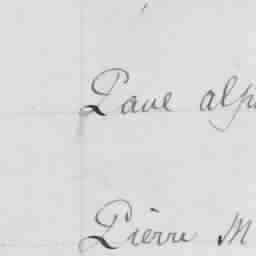 Paul alp
Pierre M